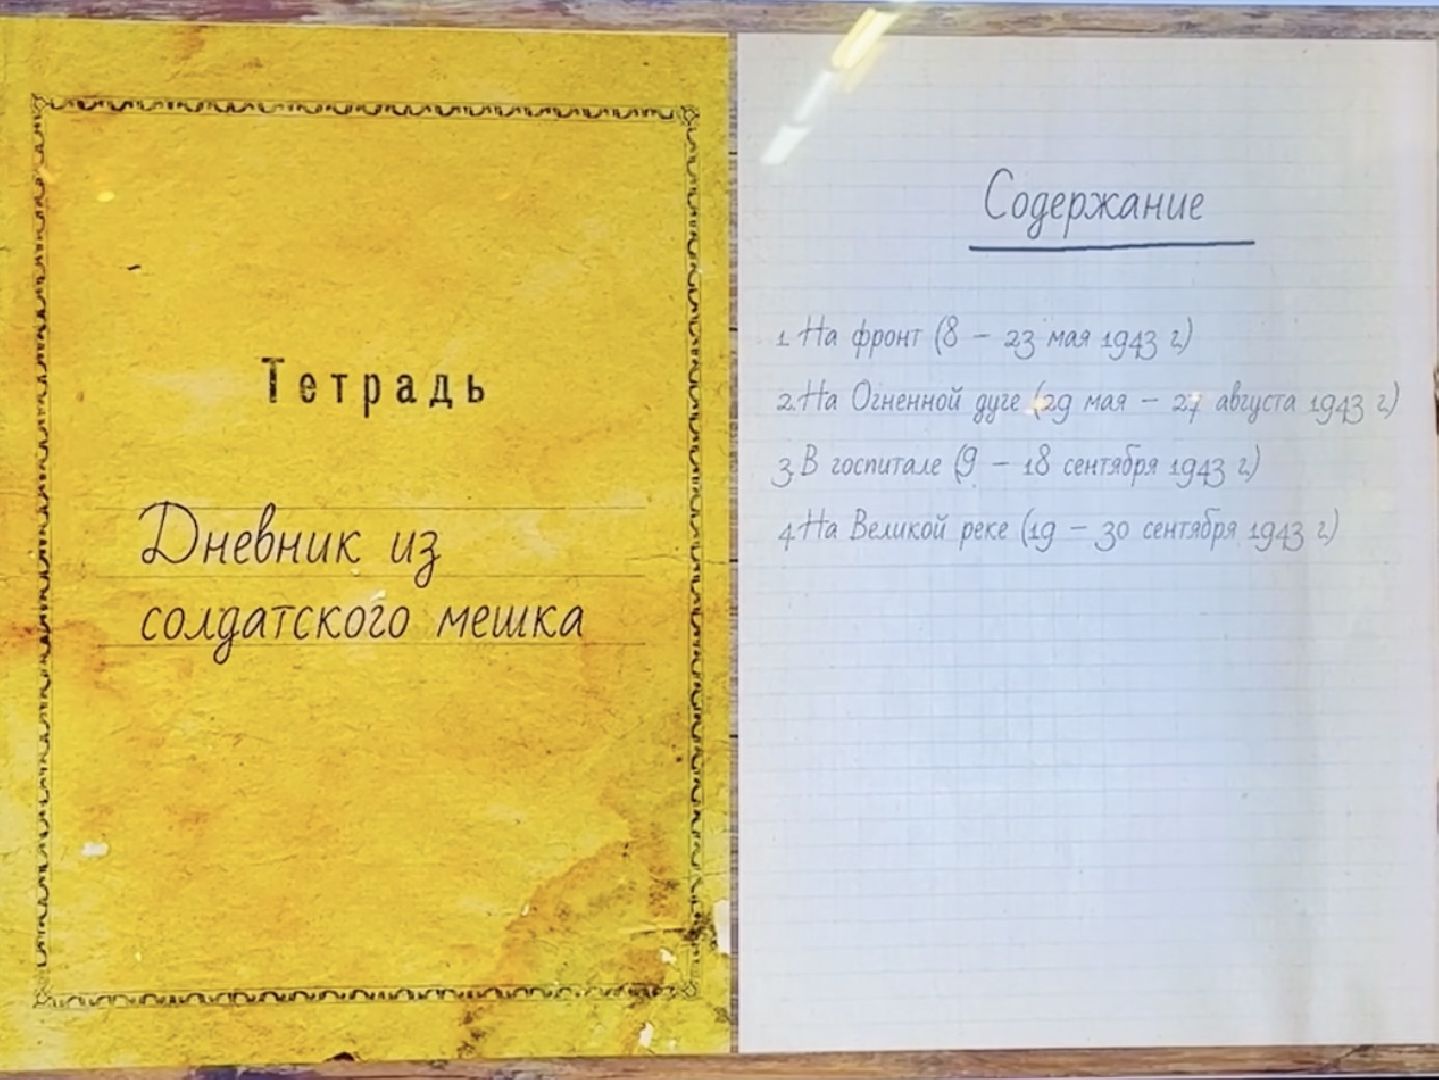 Тетрадь
Дневник из
солдатского мешка
Содержание
1. На фронт (8 – 23 мая 1943 г.)
2. На Огненной дуге (29 мая – 27 августа 1943 г.)
3. В госпитале (9 – 18 сентября 1943 г.)
4. На Великой реке (19 – 30 сентября 1943 г.)